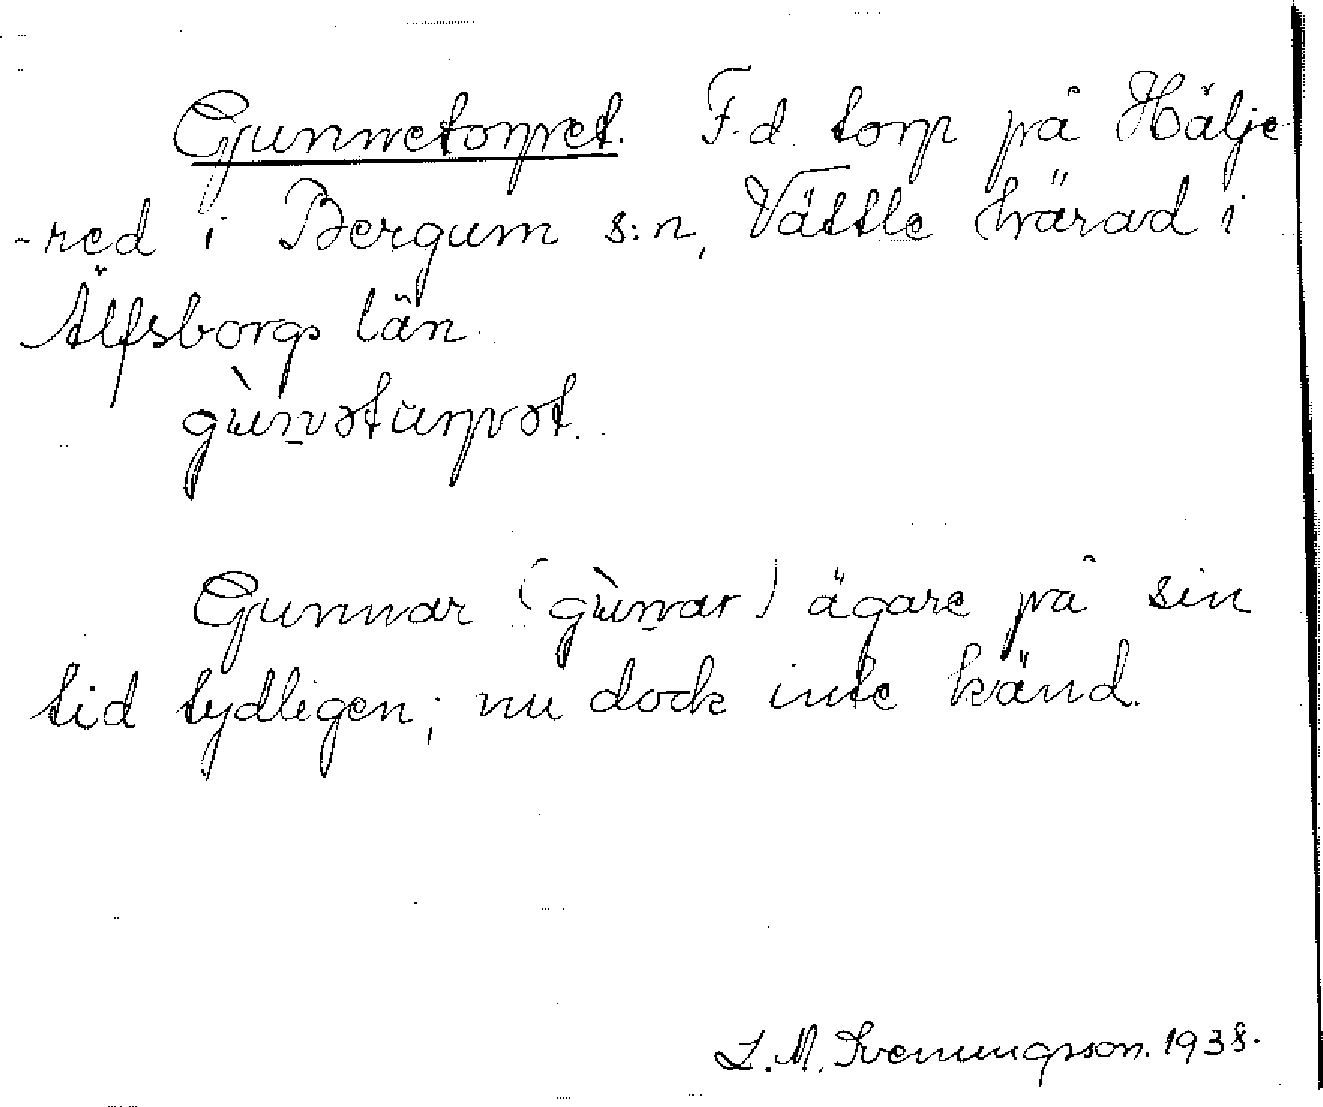 Gunnetorpet. F.d. torp på Hälje-
-red i Bergum s:n, Vättle härad i
Älfsborgs län.
gùn̲ətu̇rpət.
Gunnar (gùn̲ar) ägare på sin
tid tydligen; nu dock inte känd.
L. M. Svenungsson. 1938.